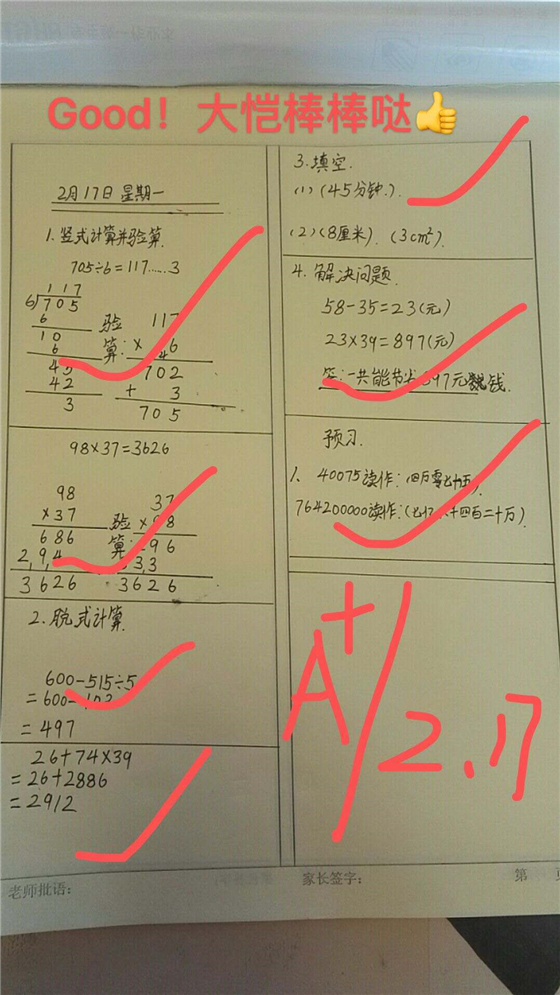 Good！大恺棒棒哒👍
2月17日 星期一
1.竖式计算并验算.
705÷6=117……3
117
6√705
6
10
6
45
42
3
验算:
117
×6
4
702
+ 3
705
98×37=3626
98
×37
686
2,9,4
3626
验算:
37
×98
296
333
3626
2.脱式计算
600-515÷5
=600-103
=497
26+74×39
=26+2886
=2912
3.填空.
(1)(45分钟.)
(2)(8厘米).(3cm²).
4.解决问题.
58-35=23(元)
23×39=897(元)
答:一共能节省897元钱.
预习.
1. 40075读作:(四万零七十五).
764200000读作:(七亿六千四百二十万)
A+/2.17
老师批语:
家长签字:
第 页